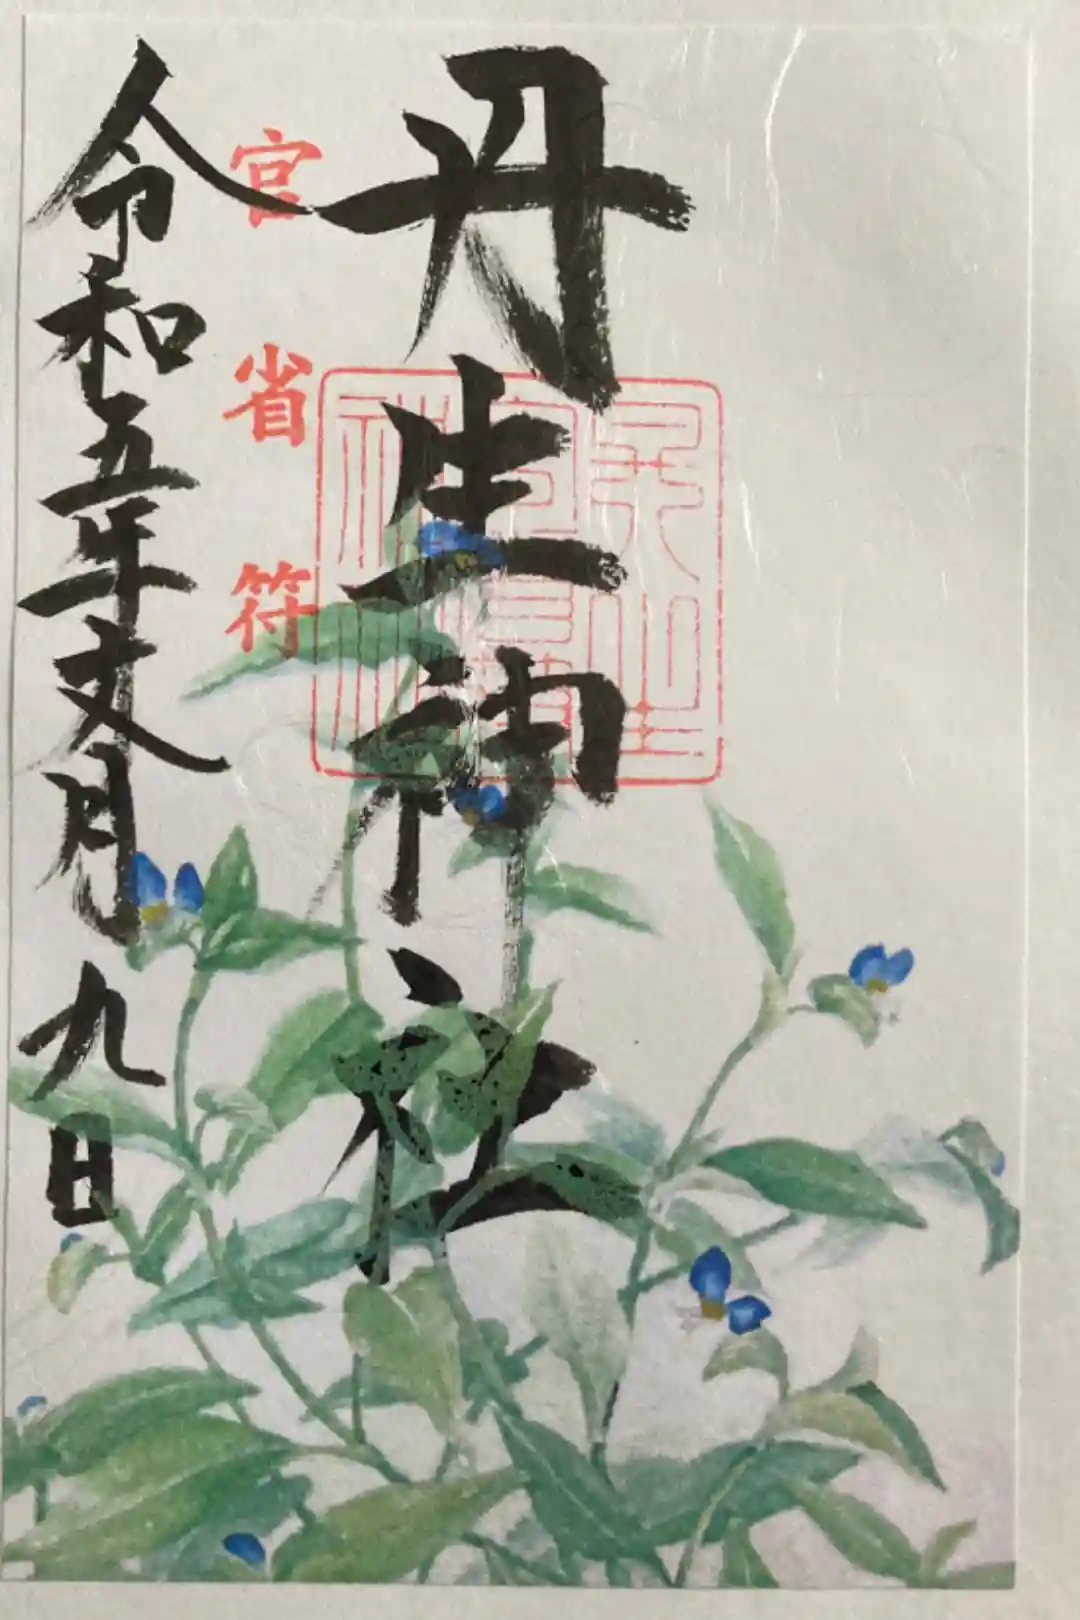 丹生神社
官省符
令和五年文月九日